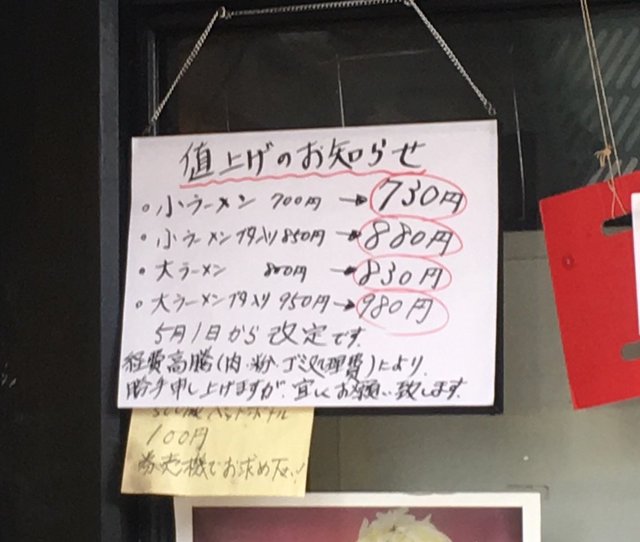 値上げのお知らせ
・小ラーメン 700円→730円
・小ラーメンブタ入り850円→880円
・大ラーメン 800円→830円
・大ラーメンブタ入り 950円→980円
5月1日から改定です.
経費高騰(肉・粉・ゴミ処理費)により,
勝手申し上げますが、宜しくお願い致します.
100円
券売機でお求め下さい!